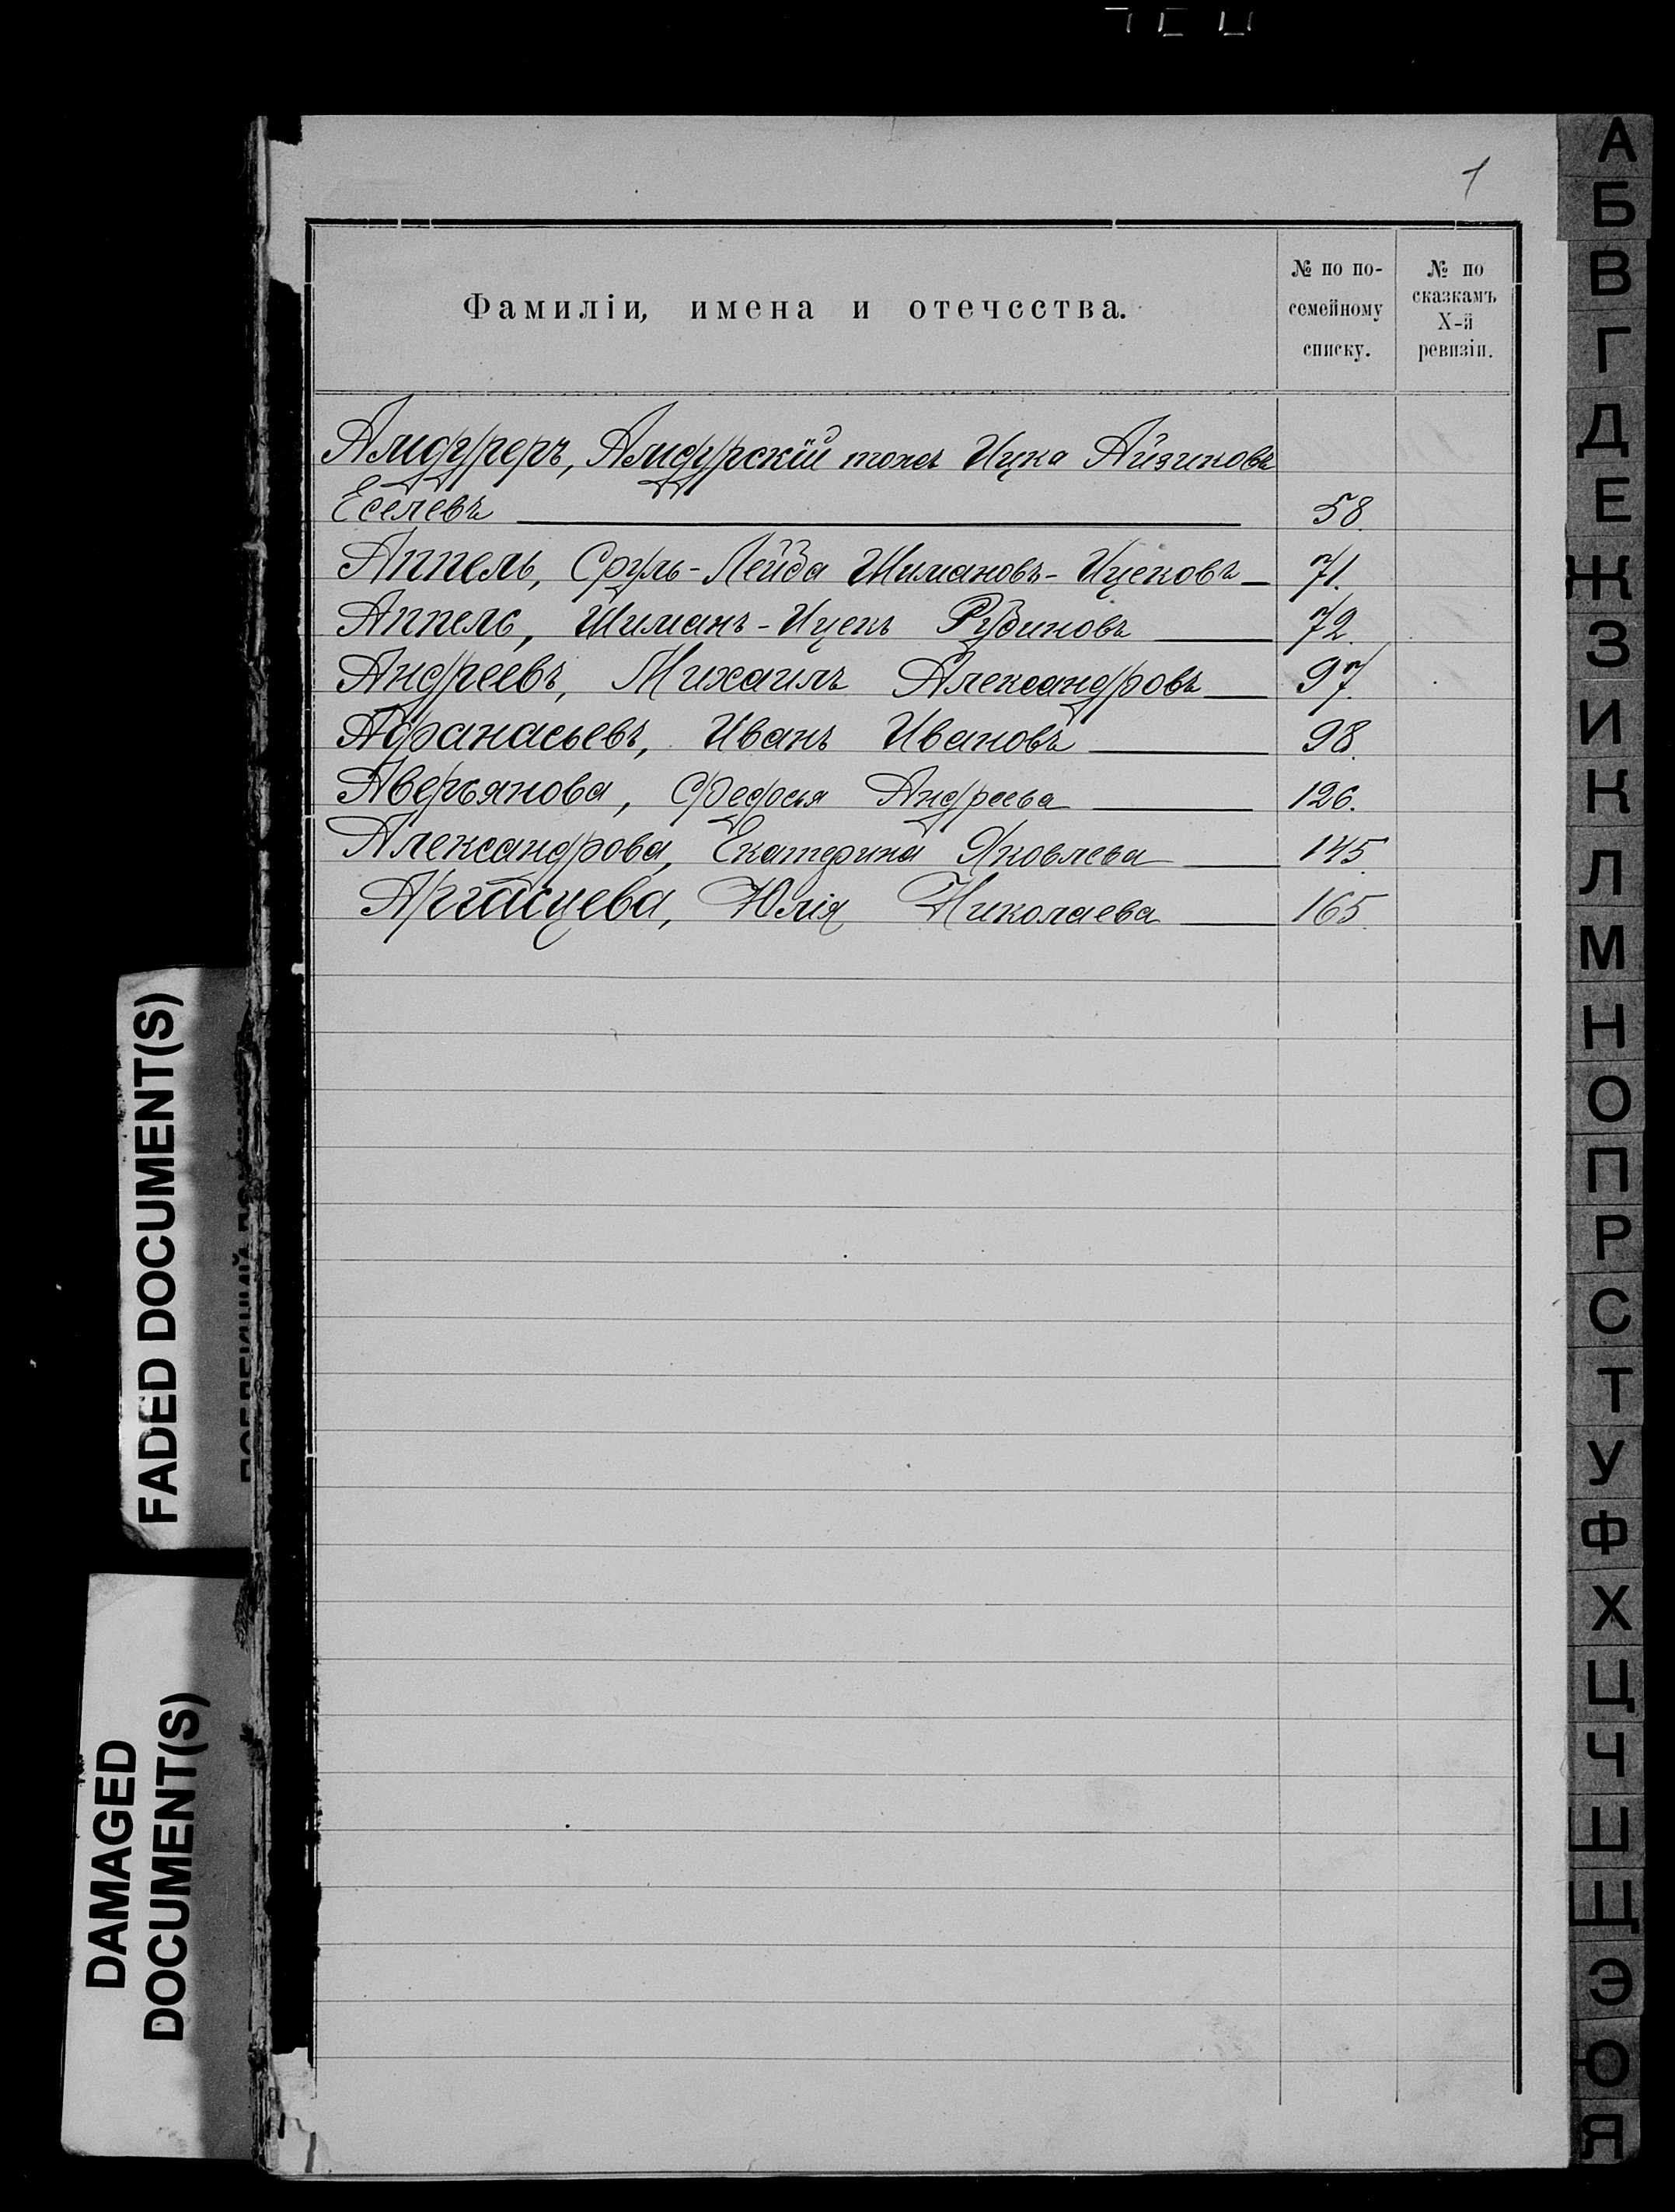 1
Фамиліи, имена и отечества.
№ по по-
семейному
списку.
№ по
сказкамъ
X-й
ревизіи.
Амдуреръ, Амдурскій тожъ Ицка Айзиковъ
Еселевъ 58.
Аппель, Сруль-Лейба Шимановъ-Ицековъ 71.
Аппель, Шиманъ-Ицекъ Рубиновъ 72.
Андреевъ, Михаилъ Александровъ 97.
Афанасьевъ, Иванъ Ивановъ 98.
Аверьянова, Андреева 126.
Александрова, Екатерина Яковлева 145
Юлія Николаева 165
А
Б
В
Г
Д
Е
Ж
З
И
К
Л
М
Н
О
П
Р
С
Т
У
Ф
Х
Ц
Ч
Ш
Щ
Э
Ю
Я
FADED DOCUMENT(S)
DAMAGED
DOCUMENT(S)